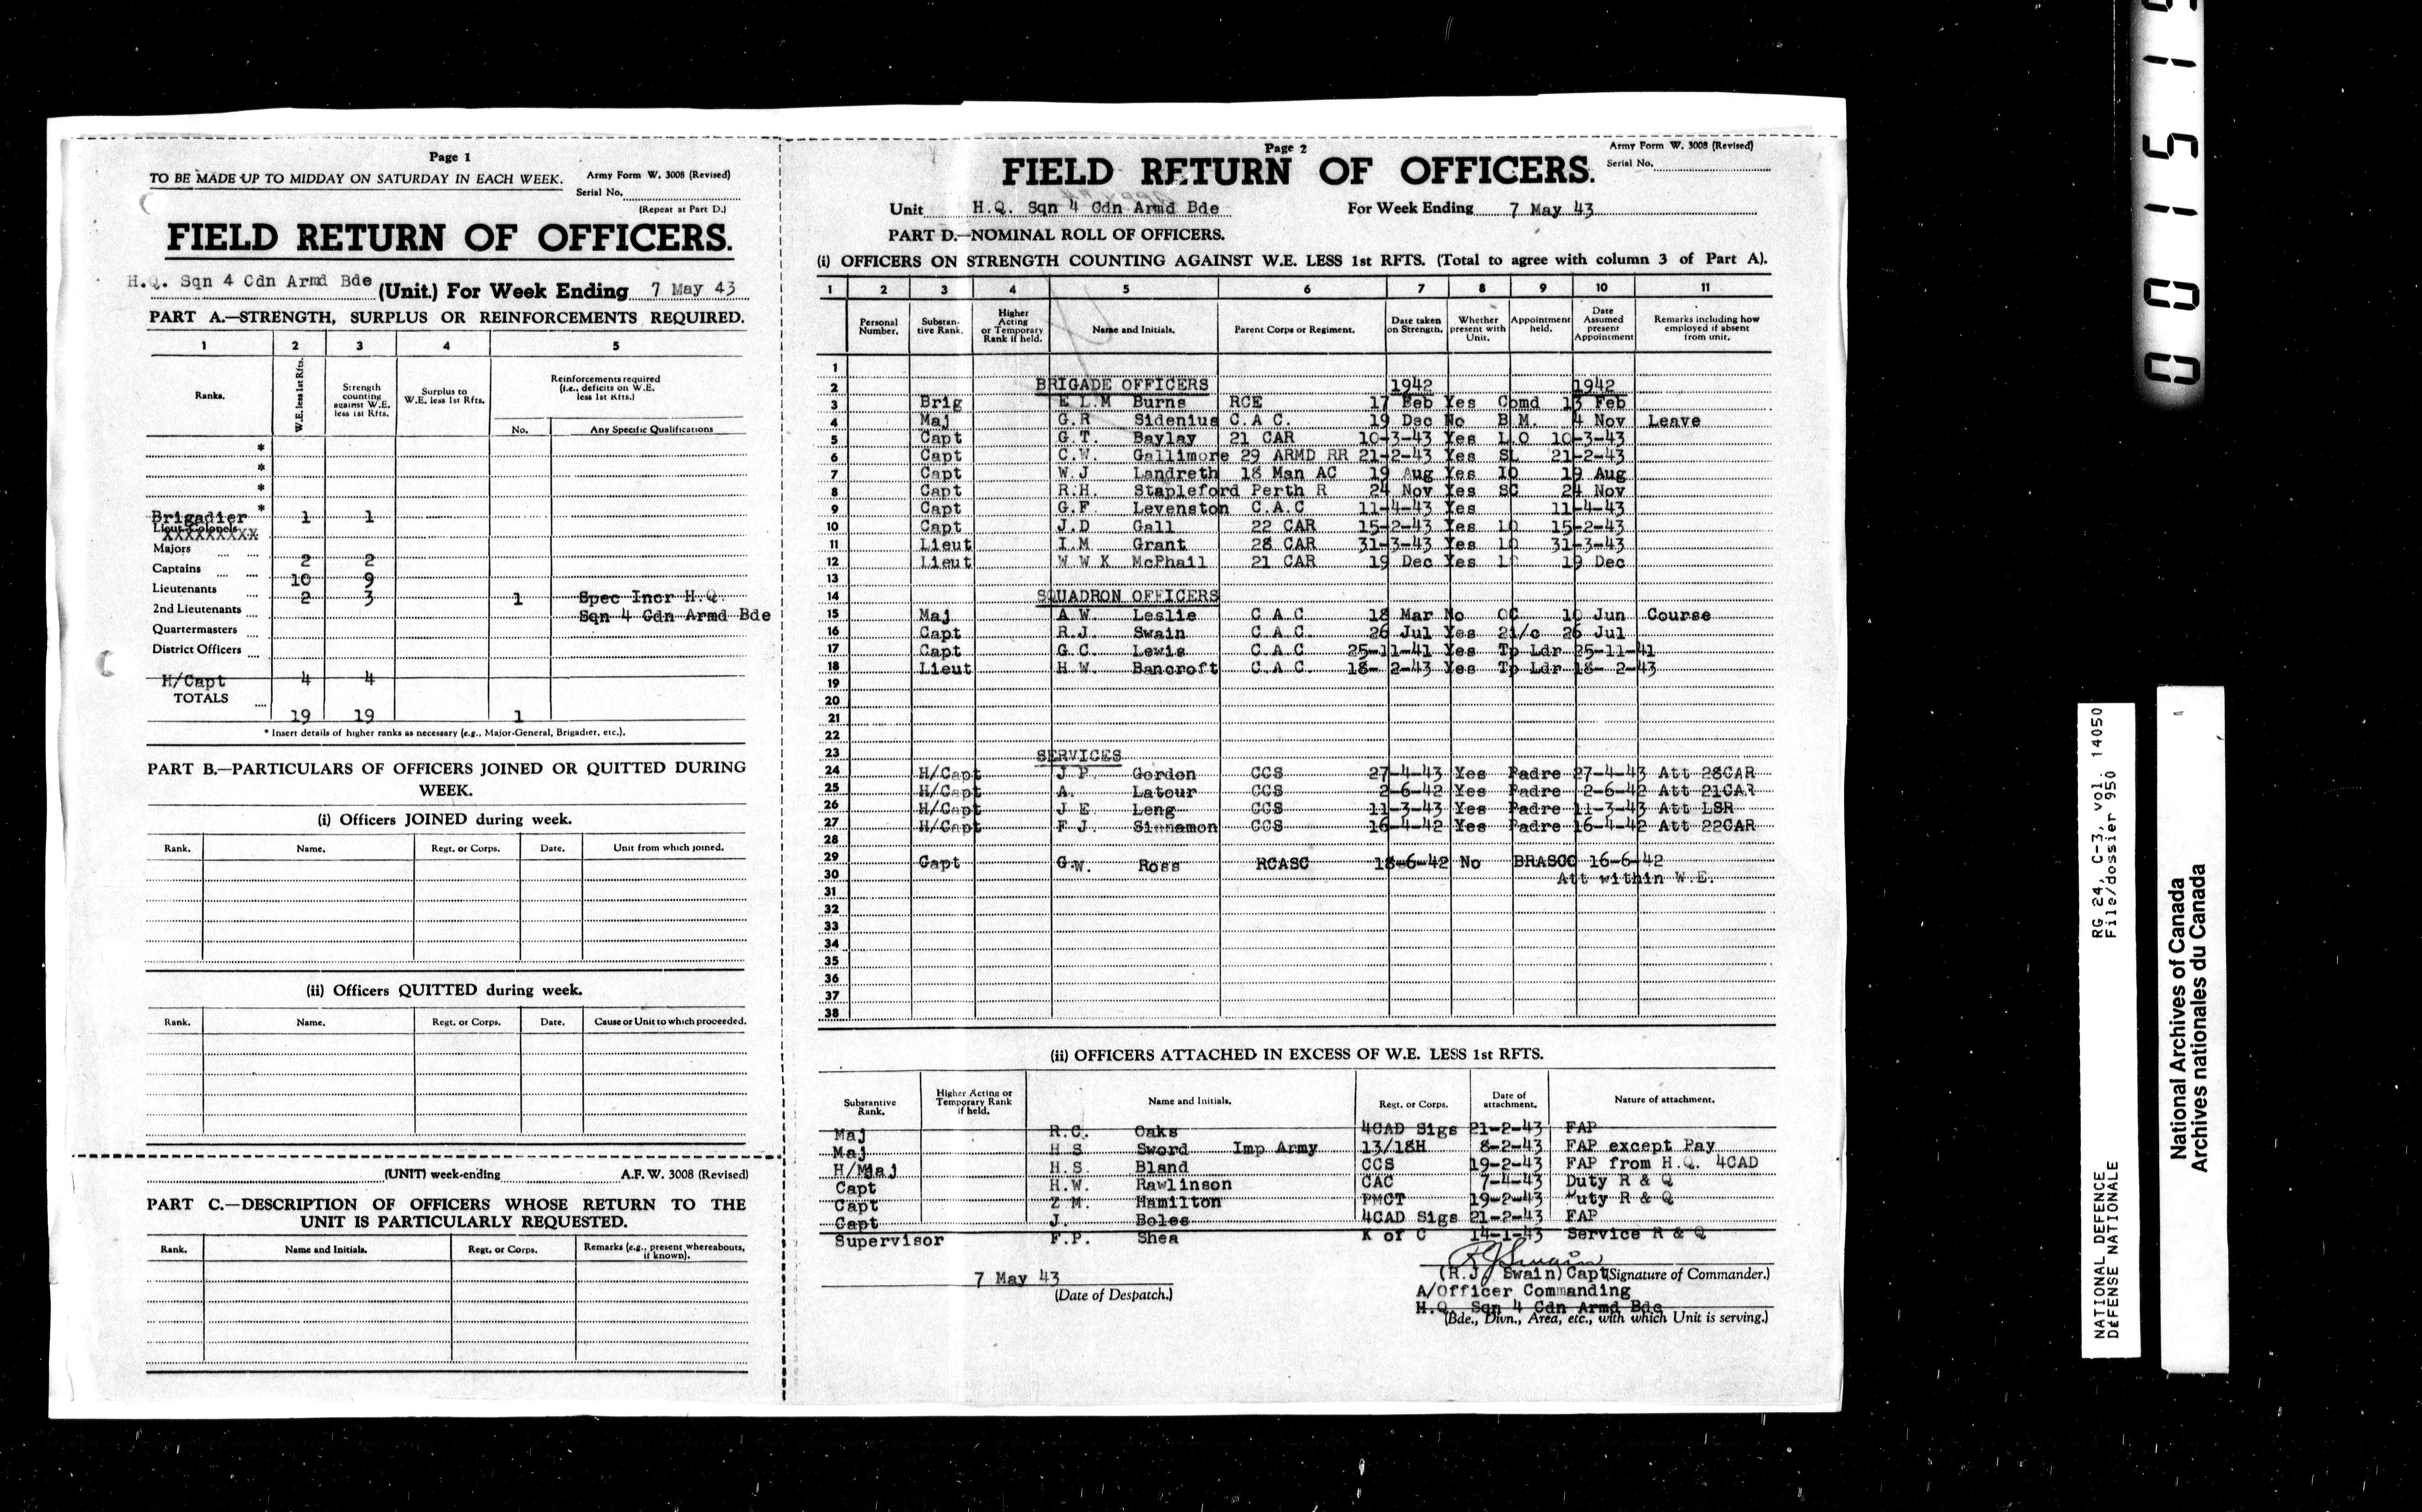 Page 1
TO BE MADE UP TO MIDDAY ON SATURDAY IN EACH WEEK. Army Form W. 3008 (Revised)
Serial No.
(Repeat at Part D.)
FIELD RETURN OF OFFICERS.
H.Q. Sqn 4 Cdn Armd Bde (Unit.) For Week Ending 7 May 43
PART A.—STRENGTH, SURPLUS OR REINFORCEMENTS REQUIRED.
1 2 3 4 5
Ranks. W.E. less 1st Rfts. Strength counting against W.E. less 1st Rfts. Surplus to W.E. less 1st Rfts. Reinforcements required (i.e., deficits on W.E. less 1st Rfts.)
No. Any Specific Qualifications
*
*
*
*
Brigadier 1 1
Lieut-Colonels
XXXXXXXXX
Majors 2 2
Captains 10 9
Lieutenants 2 3 1 Spec Incr H.Q.
2nd Lieutenants Sqn 4 Cdn Armd Bde
Quartermasters
District Officers
H/Capt 4 4
TOTALS 19 19 1
* Insert details of higher ranks as necessary (e.g., Major-General, Brigadier, etc.).
PART B.—PARTICULARS OF OFFICERS JOINED OR QUITTED DURING
WEEK.
(i) Officers JOINED during week.
Rank. Name. Regt. or Corps. Date. Unit from which joined.
(ii) Officers QUITTED during week.
Rank. Name. Regt. or Corps. Date. Cause or Unit to which proceeded.
(UNIT) week-ending A.F.W. 3008 (Revised)
PART C.—DESCRIPTION OF OFFICERS WHOSE RETURN TO THE
UNIT IS PARTICULARLY REQUESTED.
Rank. Name and Initials. Regt. or Corps. Remarks (e.g., present whereabouts, if known).
Page 2
Army Form W. 3008 (Revised)
FIELD RETURN OF OFFICERS. Serial No.
Unit H.Q. Sqn 4 Cdn Armd Bde For Week Ending 7 May 43
PART D.—NOMINAL ROLL OF OFFICERS.
(i) OFFICERS ON STRENGTH COUNTING AGAINST W.E. LESS 1st RFTS. (Total to agree with column 3 of Part A).
1 2 3 4 5 6 7 8 9 10 11
Personal Number. Substantive Rank. Higher Acting or Temporary Rank if held. Name and Initials. Parent Corps or Regiment. Date taken on Strength. Whether present with Unit. Appointment held. Date Assumed present Appointment Remarks including how employed if absent from unit.
1
2 BRIGADE OFFICERS 1942 1942
3 Brig E L M Burns RCE 17 Feb Yes Comd 13 Feb
4 Maj G.R Sidenius C.A.C. 19 Dec No B M. 4 Nov Leave
5 Capt G.T. Baylay 21 CAR 10-3-43 Yes L.O 10-3-43
6 Capt C.W. Gallimore 29 ARMD RR 21-2-43 Yes SL 21-2-43
7 Capt W.J Landreth 18 Man AC 19 Aug Yes IO 19 Aug
8 Capt R.H. Stapleford Perth R 24 Nov Yes SC 24 Nov
9 Capt G.F Levenston C.A.C 11-4-43 Yes 11-4-43
10 Capt J.D Gall 22 CAR 15-2-43 Yes LO 15-2-43
11 Lieut I.M Grant 28 CAR 31-3-43 Yes LO 31-3-43
12 Lieut W W K McPhail 21 CAR 19 Dec Yes 19 Dec
13
14 SQUADRON OFFICERS
15 Maj A W. Leslie C A C 18 Mar No OC 10 Jun Course
16 Capt R.J. Swain C.A.C. 26 Jul Yes 2i/c 26 Jul
17 Capt G.C. Lewis C.A.C 25-11-41 Yes Tp Ldr 25-11-41
18 Lieut H.W. Bancroft C.A.C. 18-2-43 Yes Tp Ldr 18-2-43
19
20
21
22
23 SERVICES
24 H/Capt J P. Gordon CCS 27-4-43 Yes Padre 27-4-43 Att 28CAR
25 H/Capt A. Latour CCS 2-6-42 Yes Padre 2-6-42 Att 21CAR
26 H/Capt J E. Leng CCS 11-3-43 Yes Padre 11-3-43 Att LSR
27 H/Capt F J. Sinnamon CCS 16-4-42 Yes Padre 16-4-42 Att 22CAR
28
29 Capt G.W. Ross RCASC 18-6-42 No BRASCO 16-6-42
30 Att within W.E.
31
32
33
34
35
36
37
38
(ii) OFFICERS ATTACHED IN EXCESS OF W.E. LESS 1st RFTS.
Substantive Rank. Higher Acting or Temporary Rank if held. Name and Initials. Regt. or Corps. Date of attachment. Nature of attachment.
Maj R.C. Oaks 4CAD Sigs 21-2-43 FAP
Maj H S Sword Imp Army 13/18H 8-2-43 FAP except Pay
H/Maj H.S. Bland CCS 19-2-43 FAP from H.Q. 4CAD
Capt H.W. Rawlinson CAC 7-4-43 Duty R & Q
Capt Z M. Hamilton PMCT 19-2-43 Duty R & Q
Capt J. Boles 4CAD Sigs 21-2-43 FAP
Supervisor F.P. Shea K of C 14-1-43 Service R & Q
RJSwain
7 May 43 (R.J. Swain) Capt (Signature of Commander.)
(Date of Despatch.) A/Officer Commanding
H.Q. Sqn 4 Cdn Armd Bde
(Bde., Divn., Area, etc., with which Unit is serving.)
001519
NATIONAL DEFENCE RG 24, C-3, vol 14050
DÉFENSE NATIONALE File/dossier 950
National Archives of Canada
Archives nationales du Canada